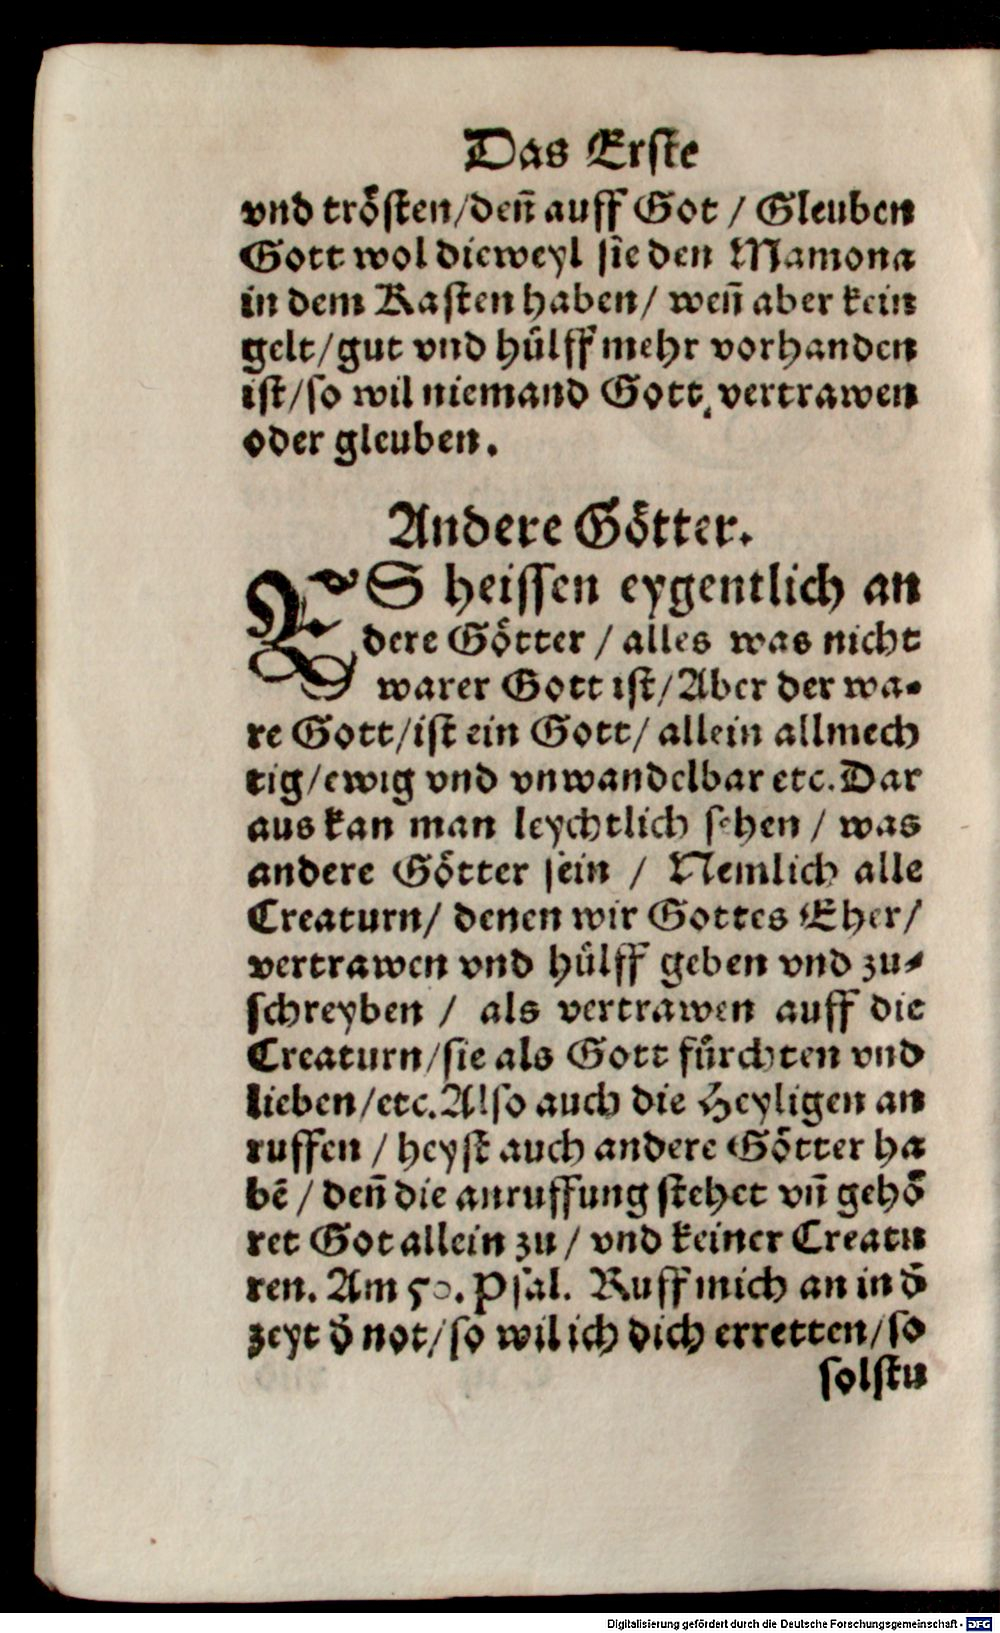 Das Erste
vnd trösten/deñ auff Got / Gleuben
Gott wol dieweyl sie den Mamona
in dem Kasten haben/ weñ aber kein
gelt/gut vnd hülff mehr vorhanden
ist/so wil niemand Gott vertrawen
oder gleuben.
Andere Götter.
ES heissen eygentlich an
dere Götter / alles was nicht
warer Gott ist/Aber der wa-
re Gott/ist ein Gott/ allein allmech
tig/ewig vnd vnwandelbar etc. Dar
aus kan man leychtlich sehen / was
andere Götter sein / Nemlich alle
Creaturn/ denen wir Gottes Eher/
vertrawen vnd hülff geben vnd zu-
schreyben / als vertrawen auff die
Creaturn/sie als Gott fürchten vnd
lieben/etc. Also auch die Heyligen an
ruffen / heyst auch andere Götter ha
bē / deñ die anruffung stehet vñ gehö
ret Got allein zu / vnd keiner Creatu
ren. Am 50. Psal. Ruff mich an in d̄
zeyt d̄ not/so wil ich dich erretten/so
solstu
Digitalisierung gefördert durch die Deutsche Forschungsgemeinschaft - DFG